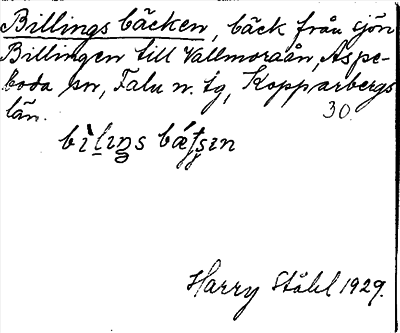 Billingsbäcken, bäck från sjön
Billingen till Vallmoraån, Aspe-
boda sn, Falu n. tg, Kopparbergs
län.
30.
Harry Ståhl 1929.